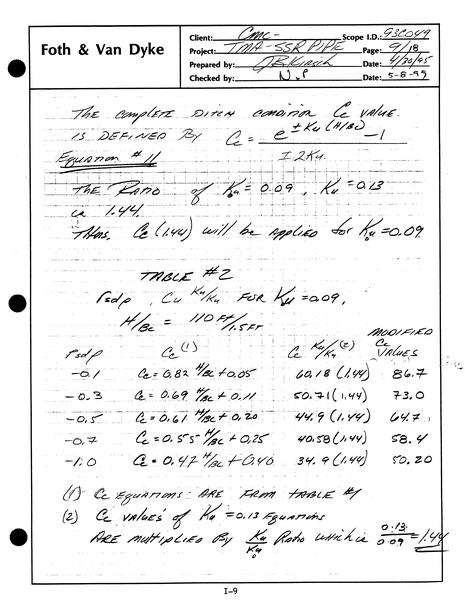 Foth & Van Dyke
Client: CMC- Scope I.D.: 93C049
Project: TMA-SSR PIPE Page: 9/18
Prepared by: Date: 4/30/95
Checked by: N.P Date: 5-8-95
THE COMPLETE DITCH CONDITION Cc VALUE
IS DEFINED BY Cc = e^±Ku(H/Bc) -1
Equation #11 ±2Ku
THE RATIO of Ku = 0.09, Ku = 0.13
is 1.44.
Thus, Cc (1.44) will be applied for Ku = 0.09
TABLE #2
rsdp, Cc Ku/Ku FOR Ku = 0.09,
H/Bc = 110 FT/1.5 FT
MODIFIED
rsdp Cc (1) Cc Ku/Ku (2) Cc VALUES
-0.1 Cc = 0.82 H/Bc + 0.05 60.18 (1.44) 86.7
-0.3 Cc = 0.69 H/Bc + 0.11 50.71 (1.44) 73.0
-0.5 Cc = 0.61 H/Bc + 0.20 44.9 (1.44) 64.7
-0.7 Cc = 0.55 H/Bc + 0.25 40.58 (1.44) 58.4
-1.0 Cc = 0.47 H/Bc + 0.40 34.9 (1.44) 50.20
(1) Cc EQUATIONS ARE FROM TABLE #1
(2) Cc VALUES of Ku = 0.13 EQUATIONS
ARE MULTIPLIED BY Ku/Ku Ratio which is 0.13/0.09 = 1.44
I-9